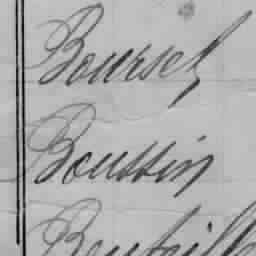 Boursel
Boussin
Bouteill